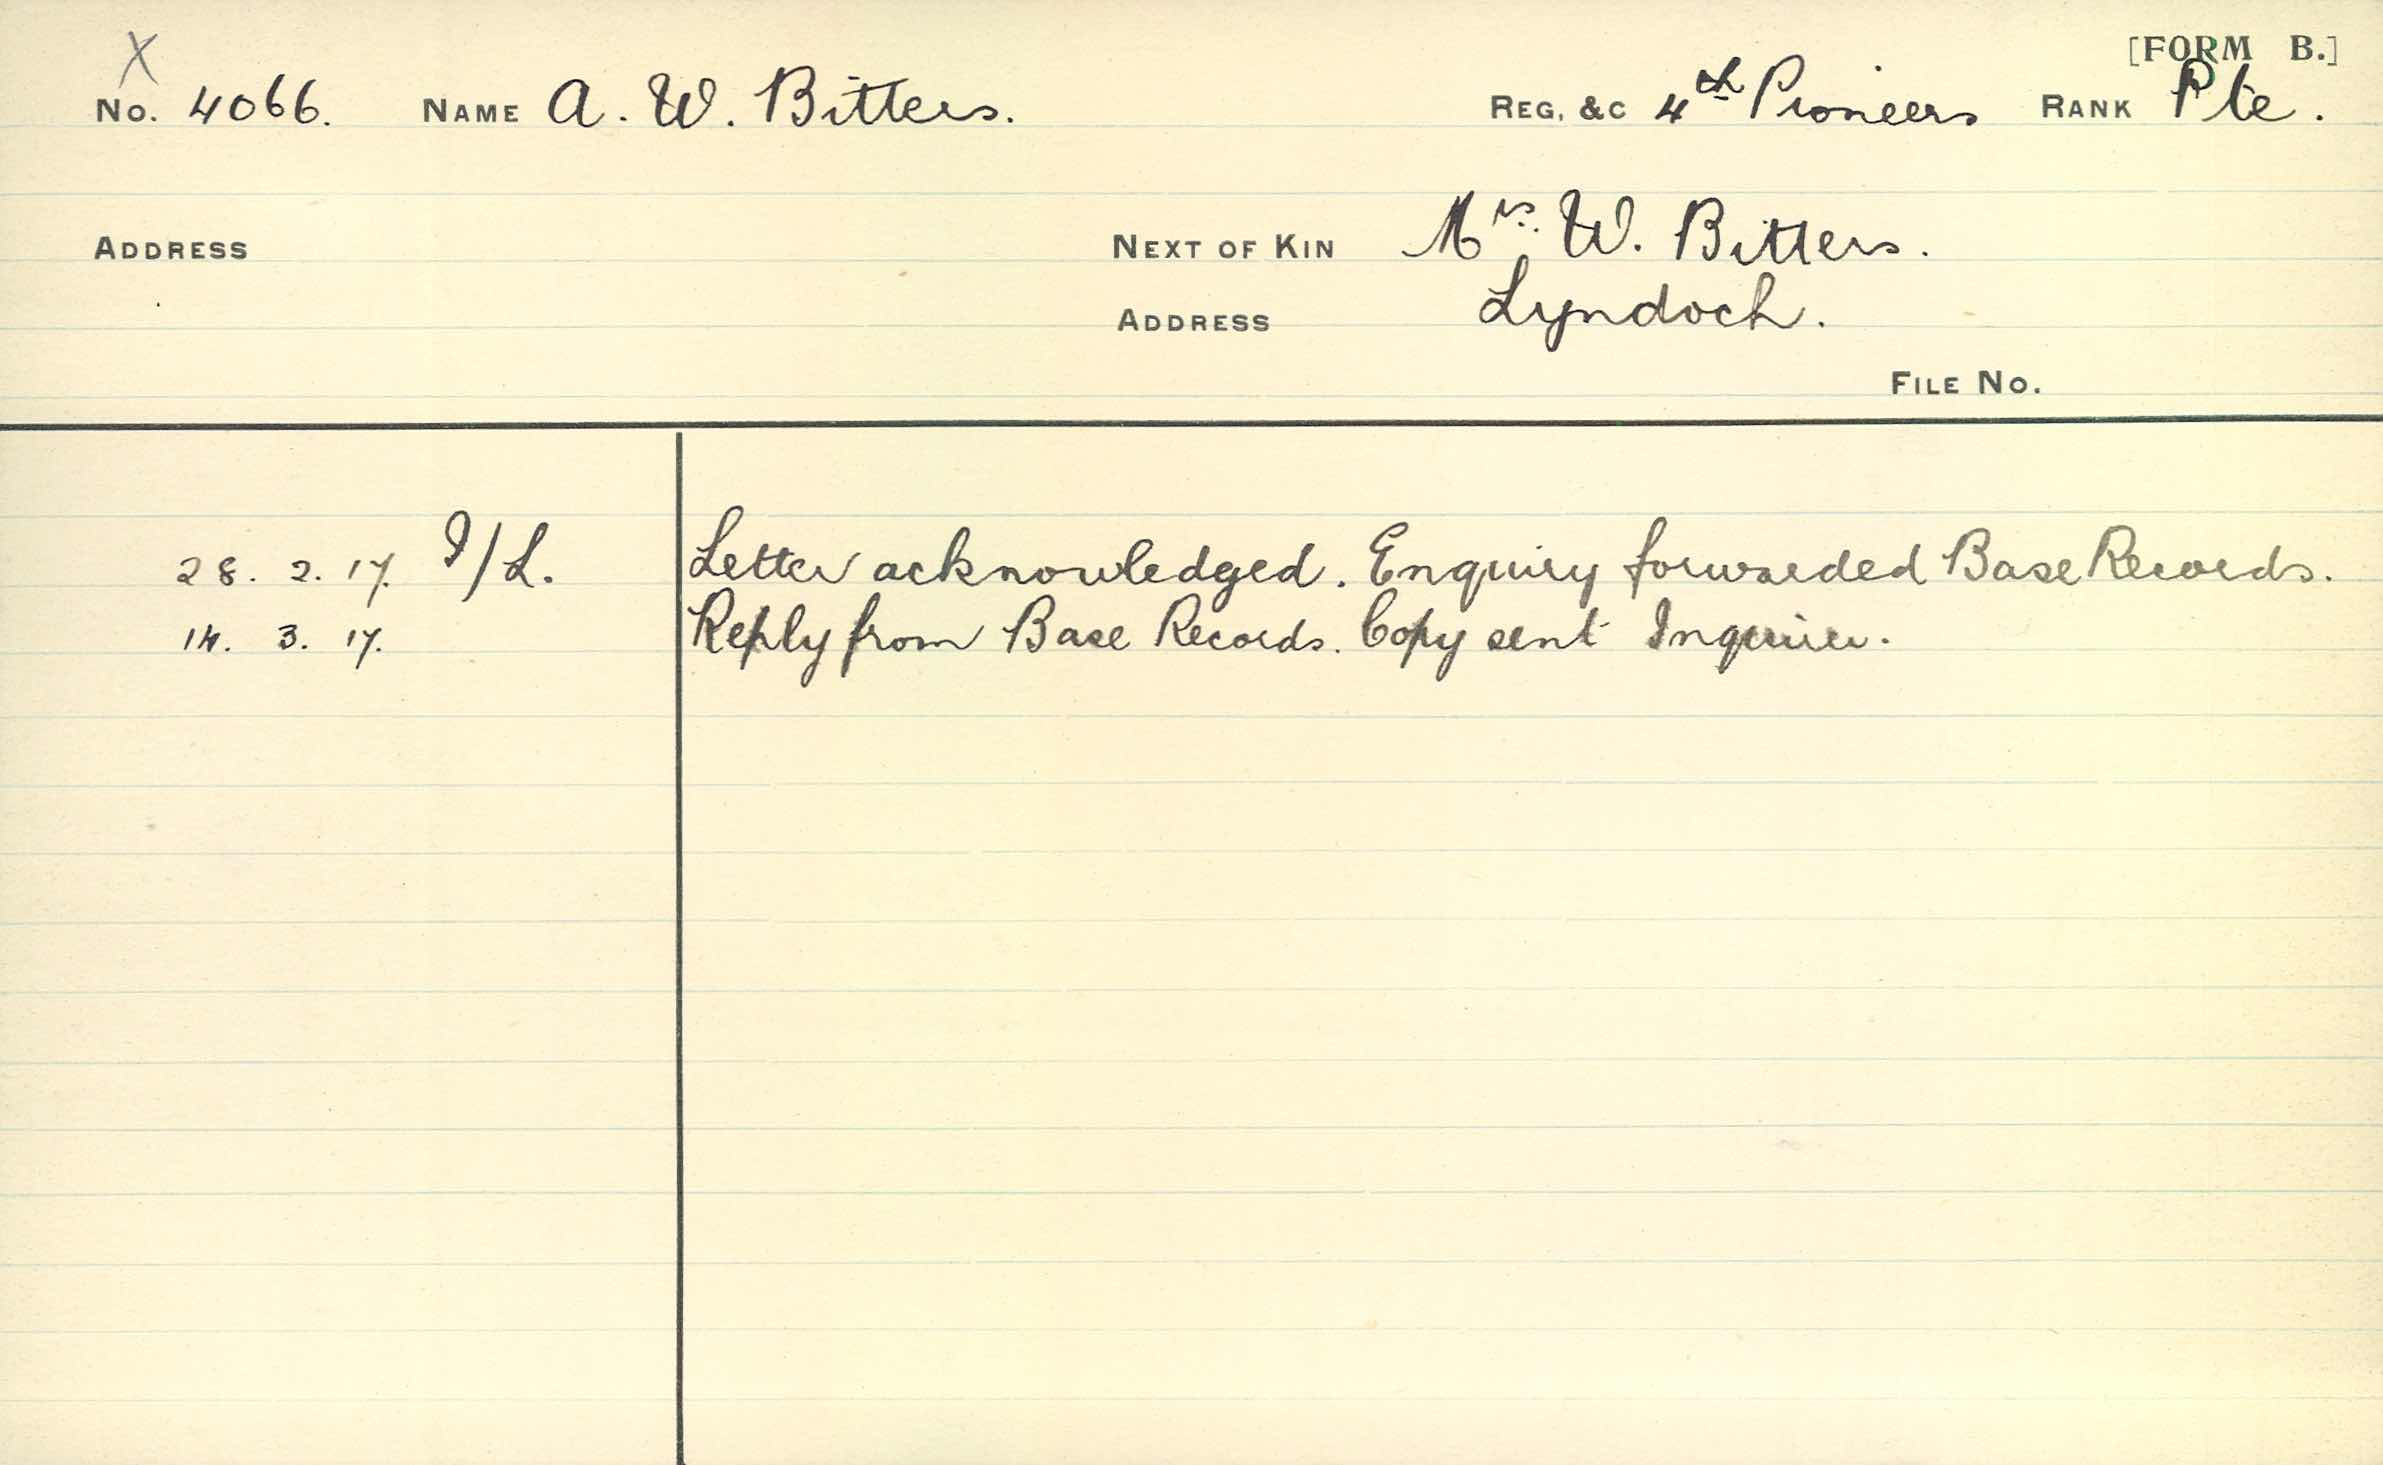 X
[FORM B.]
No. 4066. NAME A. W. Bitters. REG. &c 4th Pioneers RANK Pte.
ADDRESS NEXT OF KIN Mrs. W. Bitters.
ADDRESS Lyndoch.
FILE No.
28. 2. 17. I/L. Letter acknowledged. Enquiry forwarded Base Records.
14. 3. 17. Reply from Base Records. Copy sent Inquirer.